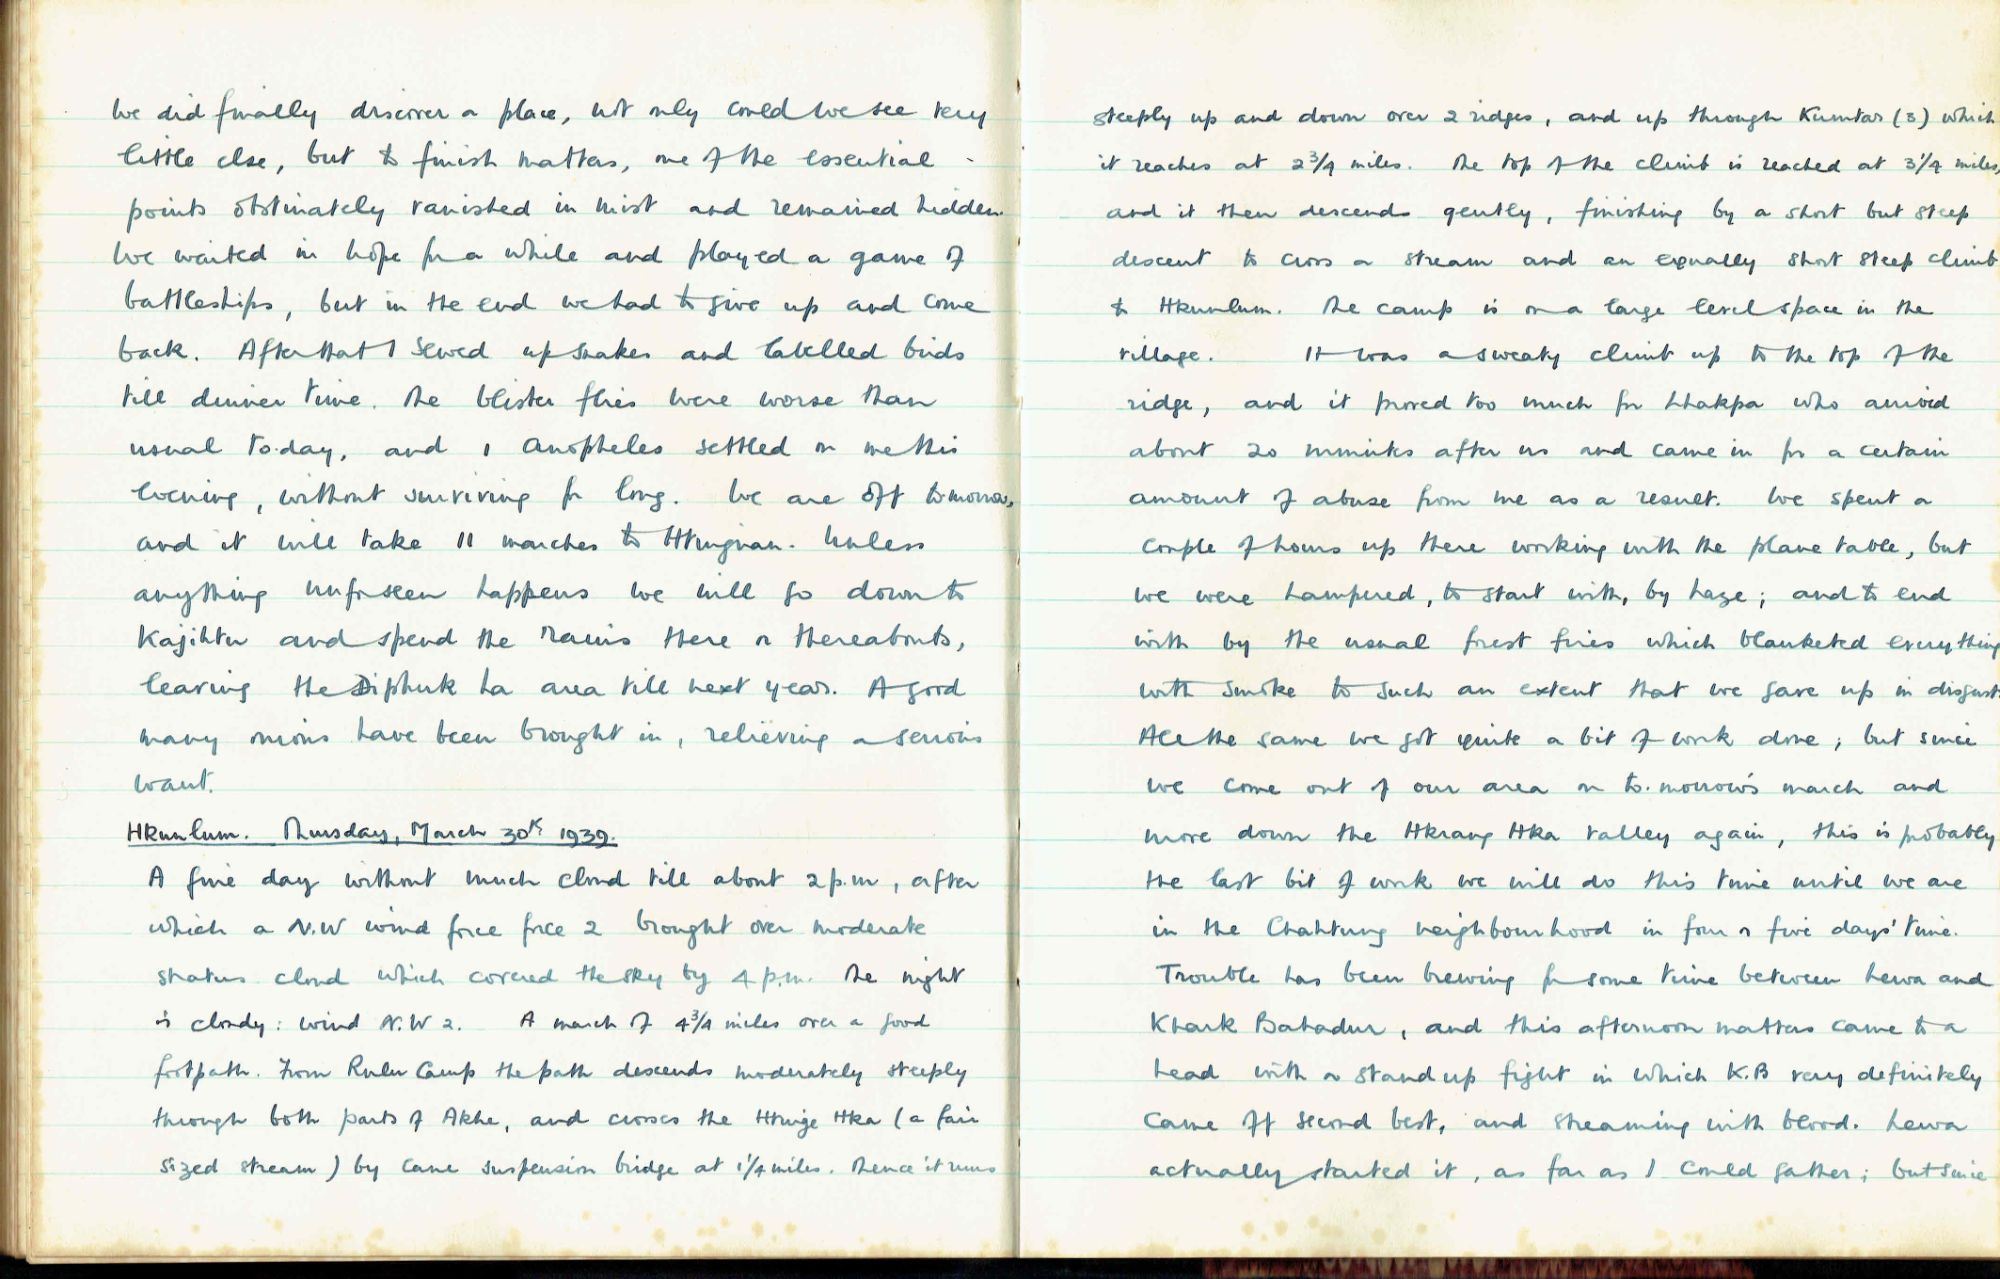 We did finally discover a place, not only could we see very
little else, but to finish matters, one of the essential
points obstinately vanished in mist and remained hidden.
We waited in hope for a while and played a game of
battleships, but in the end we had to give up and come
back. After that I sewed up snakes and labelled birds
till dinner time. The blister flies were worse than
usual to-day, and 1 Anopheles settled on me this
evening, without surviving for long. We are off tomorrow,
and it will take 11 marches to Htingnan. Unless
anything unforseen happens we will go down to
Kajihtu and spend the rains there or thereabouts,
leaving the Diphuk La area till next year. A good
many onions have been brought in, relieving a serious
want.
Hkunlum. Thursday, March 30th 1939.
A fine day without much cloud till about 2 p.m, after
which a N.W wind force force 2 brought over moderate
stratus cloud which covered the sky by 4 p.m. The night
is cloudy: wind N.W 2. A march of 4 3/4 miles over a good
footpath. From Rulu Camp the path descends moderately steeply
through both parts of Akhe, and crosses the Htinge Hka (a fair
sized stream) by cane suspension bridge at 1 1/4 miles. Thence it runs
steeply up and down over 2 ridges, and up through Kumtar (3) which
it reaches at 2 3/4 miles. The top of the climb is reached at 3 1/4 miles,
and it then descends gently, finishing by a short but steep
descent to cross a stream and an equally short steep climb
to Hkunlum. The camp is on a large level space in the
village. It was a sweaty climb up to the top of the
ridge, and it proved too much for Lhakpa who arrived
about 20 minutes after us and came in for a certain
amount of abuse from me as a result. We spent a
couple of hours up there working with the plane table, but
we were hampered, to start with, by haze; and to end
with by the usual forest fires which blanketed everything
with smoke to such an extent that we gave up in disgust.
All the same we got quite a bit of work done; but since
we come out of our area on to-morrow's march and
move down the Hkrang Hka valley again, this is probably
the last bit of work we will do this time until we are
in the Chahtung neighbourhood in four or five days' time.
Trouble has been brewing for some time between Lewa and
Khark Bahadur, and this afternoon matters came to a
head with a stand up fight in which K.B very definitely
came off second best, and streaming with blood. Lewa
actually started it, as far as I could gather; but since